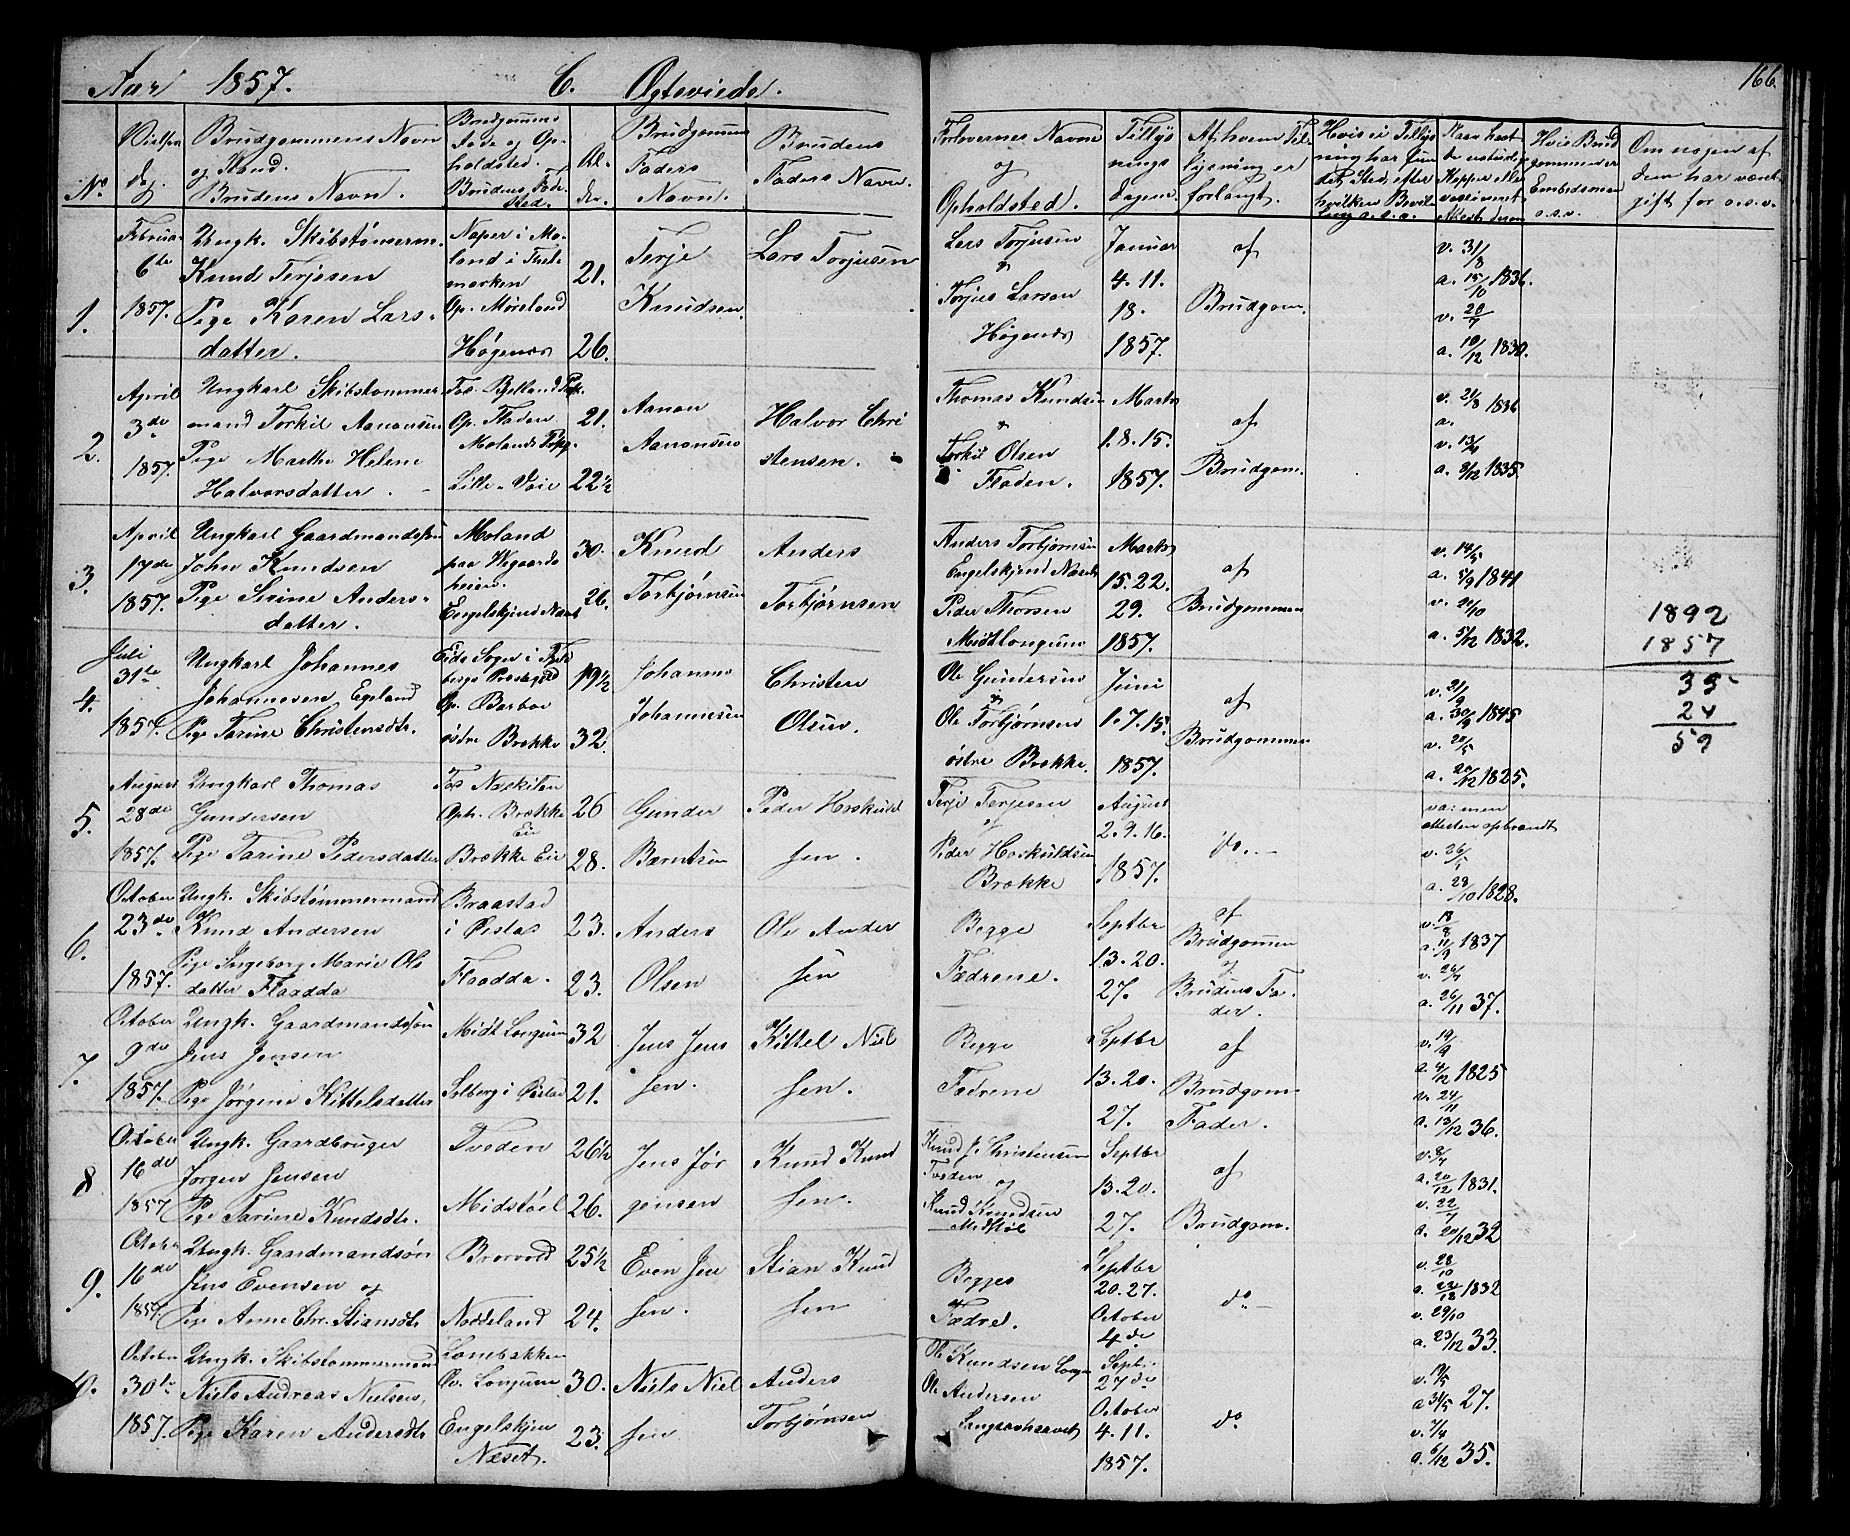 Aar 1857. C. Ægteviede. 166.
No.
Vielses
dag.
Brudgommens Navn
og Stand.
Brudens Navn.
Brudgommens
Føde og Op-
holdsted.
Brudens Føde
sted.
Al-
der.
Brudgommens
Faders
Navn.
Brudens
Faders Navn.
Forlovernes Navne
og
Opholdsted.
Tillys
nings
dagene
Af hvem Til-
lysning er
forlangt.
Om nogen af
dem har været
gift før o.s.v.
1.
Februar
6te
1857.
Ungk. Skibstømerm.
Knud Terjesen
Pige Karen Lars-
datter.
land i Thele
marken
Op. Moreland
Høgenes
21.
26.
Terje
Knudsen
Lars Torjusen
Lars Torjusen
&
Torjus Larsen
Høgenes
Januar
4. 11.
18.
1857.
af
Brudgom.
v. 31/8
a. 15/10 1836.
v. 20/7
a. 10/12 1830.
2.
April
3de
1857.
Ungkarl Skibstømmer
mand Torkil Aanonsen
Pige Marthe Helene
Halvorsdatter.
Fød. Bjelland Præg.
Op. Fladen
Molands Præg.
Lille-Vaie
21.
22½
Aanon
Aanonsen
Halvor Chri
stensen.
Thomas Knudsen
&
Torkil Olsen
Fladen.
Marts
1. 8. 15.
1857.
af
Brudgom.
v. 21/8 1836
a.
v. 13/4
a. 8/12 1835.
3.
April
17de
1857.
Ungkarl Gaardmandssøn
John Knudsen
Pige Stine Anders-
datter.
Moland
paa Vegaards
heien.
Engelskjend Næset
30.
26.
Knud
Torbjørnsen
Anders
Torbjørnsen
Anders Torbjørnsen
Engelskjend Næset
Peder Thorsen
Midt Longum
Marts
15. 22.
29.
1857.
af
Brudgommen
v. 14/5
a. 5/9 1841
v. 20/10
a. 5/12 1832.
1892
1857
35
24
59
4.
Juli
31te
1857.
Ungkarl Johannes
Johannesen Egeland
Pige Tarine Christensdtr.
Eids Sogn i Fede
bergs Præstegjeld
Op. Barboe
østre Brække
19½
32.
Johannes
Johannesen
Christen
Olsen.
Ole Gundersen
&
Ole Torbjørnsen
østre Brække.
Juni
1. 7. 15.
1857.
af
Brudgommen
v. 21/9
a. 30/9 1845.
v. 20/5
a. 20/12 1825.
5.
August
28de
1857.
Ungkarl Thomas
Gundersen
Pige Tarine Pedersdatter
Fød Næskilen
Oph. Brække
Eie
Brække Eie
26
28.
Gunder
Berntsen
Peder Hoskuld
sen.
Terje Terjesen
og
Peder Hoskuldsen
Brække
August
2. 9. 16.
1857.
do. —
va: men
attesten opbrændt
v. 26/5
a. 28/10 1828.
6.
October
23de
1857.
Ungk. Skibstømmermand
Knud Andersen
Pige Ingeborg Marie Ols
datter Flaadda
Braastad
i Øiestad
Flaadda.
23.
23.
Anders
Olsen
Ole Ander
sen
Begge
Fædrene.
Septbr
13. 20.
27.
af
Brudgommen
og
Brudens Fa-
der.
v. 18/8
a. 11/9 1837
v. 26/4
a. 26/11 37.
7.
October
9de
1857.
Ungk. Gaardmandssøn
Jens Jensen
Pige Jørgine Kittelsdatter
Midt Longum
Solberg i Øiestad
32
21.
Jens Jens
sen.
Kittel Niel
sen.
Begge
Fædrene
Septbr
13. 20.
27.
af
Brudgom-
Fader.
v. 19/9
a. 4/12 1825
v. 24/11
a. 13/12 36.
8
October
16de
1857
Ungk. Gaardbruger
Jørgen Jensen
Pige Tarine Knudsdtr.
Tveden
Midstøel
26½
26.
Jens Jør
gensen
Knud Knud
sen.
Knud J. Christensen
Tveden og
Knud Knudsen
Midstøl
Septbr
13. 20.
27.
af
Brudgom.
v. 8/4
a. 20/12 1831.
v. 22/7
a. 20/12 32
9.
Octobr
16de
1857.
Ungk. Gaardmandsøn
Jens Evensen og
Pige Anne Chr. Stiansdtr
Brorvod
Noddeland
25½
24.
Even Jen
sen.
Stian Knud
sen
Begges
Fædre.
Septbr
20. 27.
October
4de
do —
v. 28/10
a. 22/12 1832
v. 29/10
a. 23/12 33.
10.
October
30te
1857.
Ungk. Skibstømmermand
Niels Andreas Nielsen,
Pige Karen Andersdtr
Lonebakken
Øv. Longum
Engelskjen
Næset.
30.
23.
Niels Niel
sen
Anders
Torbjørnsen
Ole Knudsen Longum
Ole Andersen
Septbr.
27de
October
4. 11.
1857.
do
v. 19/5
a 31/5 27.
v. 7/4
a. 6/12 35.